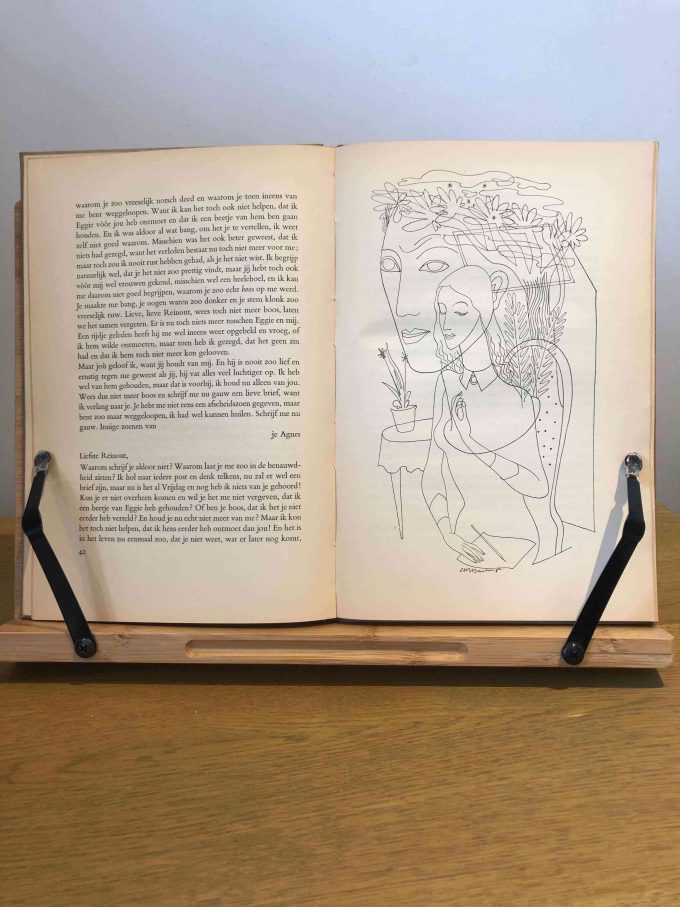 waarom je zoo vreeselijk norsch deed en waarom je toen ineens van
me bent weggeloopen. Want ik kan het toch ook niet helpen, dat ik
Eggie vòòr jou heb ontmoet en dat ik een beetje van hem ben gaan
houden. En ik was aldoor al wat bang, om het je te vertellen, ik weet
zelf niet goed waarom. Misschien was het ook beter geweest, dat ik
niets had gezegd, want het verleden bestaat nu toch niet meer voor me;
maar toch zou ik nooit rust hebben gehad, als je het niet wist. Ik begrijp
natuurlijk wel, dat je het niet zoo prettig vindt, maar jij hebt toch ook
vòòr mij wel vrouwen gekend, misschien wel een heeleboel, en ik kan
me daarom niet goed begrijpen, waarom je zoo echt boos op me werd.
Je maakte me bang, je oogen waren zoo donker en je stem klonk zoo
vreeselijk ruw. Lieve, lieve Reinout, wees toch niet meer boos, laten
we het samen vergeten. Er is nu toch niets meer tusschen Eggie en mij.
Een tijdje geleden heeft hij me wel ineens weer opgebeld en vroeg, of
ik hem wilde ontmoeten, maar toen heb ik gezegd, dat het geen zin
had en dat ik hem toch niet meer kon gelooven.
Maar jou geloof ik, want jij houdt van mij. En hij is nooit zoo lief en
ernstig tegen me geweest als jij, hij vat alles veel luchtiger op. Ik heb
wel van hem gehouden, maar dat is voorbij, ik houd nu alleen van jou.
Wees dus niet meer boos en schrijf me nu gauw een lieve brief, want
ik verlang naar je. Je hebt me niet eens een afscheidszoen gegeven, maar
bent zoo maar weggeloopen, ik had wel kunnen huilen. Schrijf me nu
gauw. Innige zoenen van
je Agnes
Liefste Reinout,
Waarom schrijf je aldoor niet? Waarom laat je me zoo in de benauwd-
heid zitten? Ik hol naar iedere post en denk telkens, nu zal er wel een
brief zijn, maar nu is het al Vrijdag en nog heb ik niets van je gehoord!
Kon je er niet overheen komen en wil je het me niet vergeven, dat ik
een beetje van Eggie heb gehouden? Of ben je boos, dat ik het je niet
eerder heb verteld? En houd je nu echt niet meer van me? Maar ik kon
het toch niet helpen, dat ik hem eerder heb ontmoet dan jou! En het is
in het leven nu eenmaal zoo, dat je niet weet, wat er later nog komt,
42